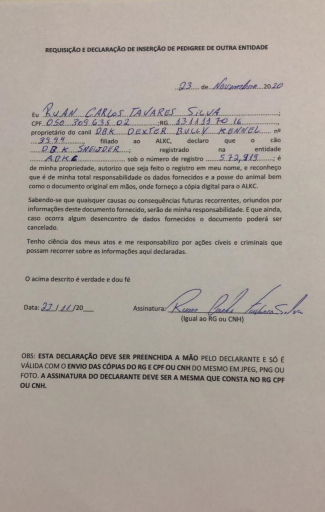 REQUISIÇÃO E DECLARAÇÃO DE INSERÇÃO DE PEDIGREE DE OUTRA ENTIDADE
23 de Novembro 2020
Eu RUAN CARLOS TAVARES SILVA;
CPF 050 309 635 02 RG 1311197016
proprietário do canil DBK DEXTER BULLY KENNEL nº
3994 filiado ao ALKC, declaro que o cão
DBK SNEIDER; registrado na entidade
ADKC sob o número de registro 572,819; é
de minha propriedade, autorizo que seja feito o registro em meu nome, e reconheço
que é de minha total responsabilidade os dados fornecidos e a posse do animal bem
como o documento original em mãos, onde forneço a cópia digital para o ALKC.
Sabendo-se que quaisquer causas ou consequências futuras recorrentes, oriundos por
informações deste documento fornecido, serão de minha responsabilidade. E que ainda,
caso ocorra algum desencontro de dados fornecidos o documento poderá ser
cancelado.
Tenho ciência dos meus atos e me responsabilizo por ações cíveis e criminais que
possam recorrer sobre as informações aqui declaradas.
O acima descrito é verdade e dou fé
Data: 23/11/20__ Assinatura: Ruan Carlos Tavares Silva
(Igual ao RG ou CNH)
OBS: ESTA DECLARAÇÃO DEVE SER PREENCHIDA A MÃO PELO DECLARANTE E SÓ É
VÁLIDA COM O ENVIO DAS CÓPIAS DO RG E CPF OU CNH DO MESMO EM JPEG, PNG OU
FOTO. A ASSINATURA DO DECLARANTE DEVE SER A MESMA QUE CONSTA NO RG CPF
OU CNH.